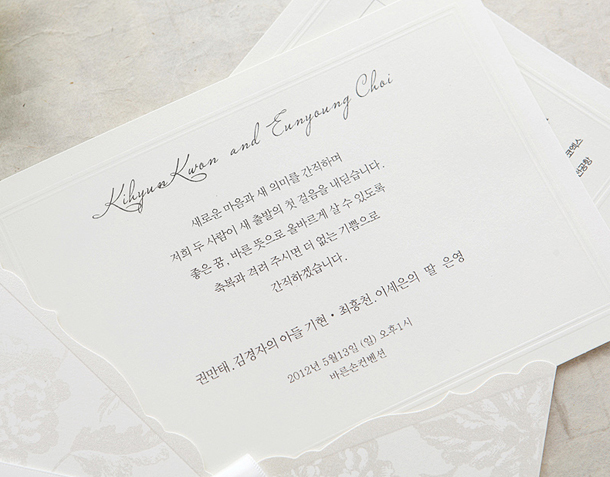 Kihyun Kwon and Eunyoung Choi
새로운 마음과 새 의미를 간직하며
저희 두 사람이 새 출발의 첫 걸음을 내딛습니다.
좋은 꿈, 바른 뜻으로 올바르게 살 수 있도록
축복과 격려 주시면 더 없는 기쁨으로
간직하겠습니다.
권만태, 김경자의 아들 기현 • 최흥천, 이세은의 딸 은영
2012년 5월13일 (일) 오후1시
바른손컨벤션
코엑스